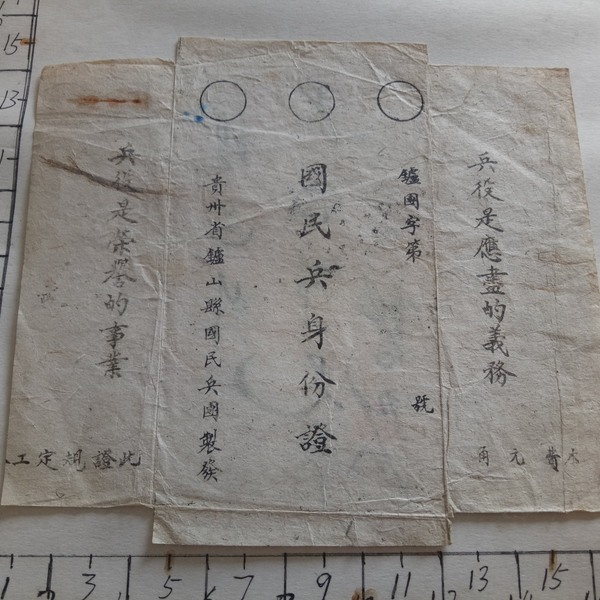 兵役是應盡的義務
鑪團字第 號
國民兵身份證
貴州省鑪山縣國民兵團製發
兵役是榮譽的事業
此證規定工
本費 元 角
15
13
1 3 5 7 9 11 13 15